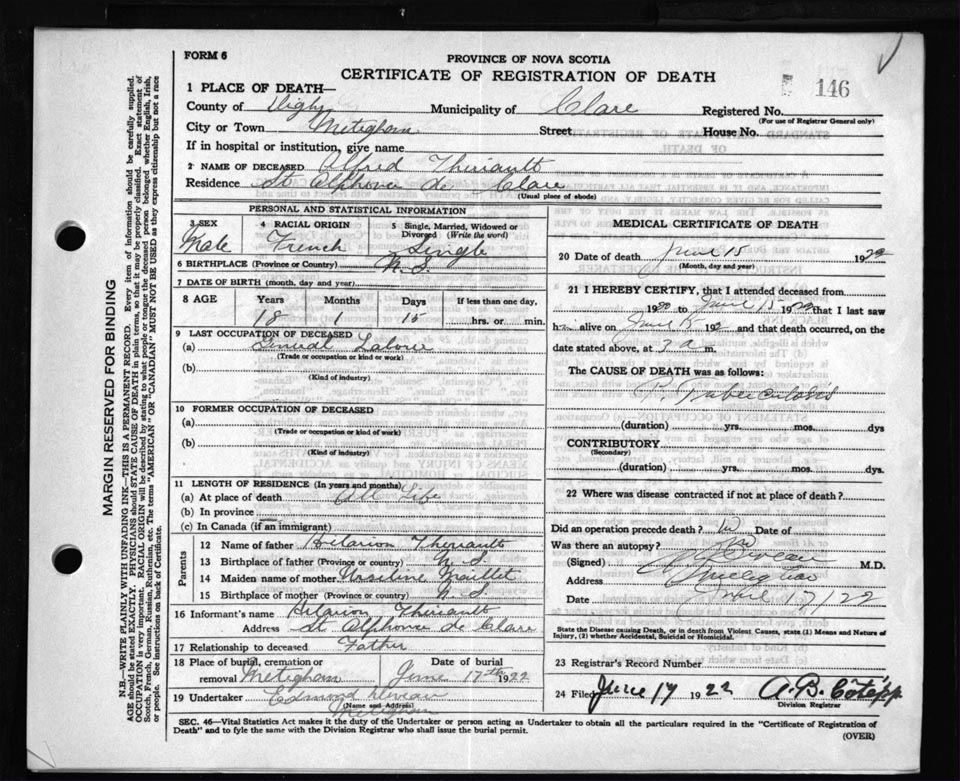 FORM 6
PROVINCE OF NOVA SCOTIA
CERTIFICATE OF REGISTRATION OF DEATH
146
1 PLACE OF DEATH—
County of Digby Municipality of Clare Registered No.
(For use of Registrar General only)
City or Town Metighan Street House No.
If in hospital or institution, give name
2 NAME OF DECEASED Alfred Theriault
Residence St Alphonce de Clare
(Usual place of abode)
PERSONAL AND STATISTICAL INFORMATION
3 SEX 4 RACIAL ORIGIN 5 Single, Married, Widowed or Divorced (Write the word)
Male French Single
6 BIRTHPLACE (Province or Country) N. S.
7 DATE OF BIRTH (month, day and year)
8 AGE Years Months Days If less than one day,
18 1 15 hrs. or min.
9 LAST OCCUPATION OF DECEASED
(a) General Laborer
(Trade or occupation or kind or work)
(b)
(Kind of industry)
10 FORMER OCCUPATION OF DECEASED
(a)
(Trade or occupation or kind of work)
(b)
(Kind of industry)
11 LENGTH OF RESIDENCE (In years and months)
(a) At place of death All Life
(b) In province
(c) In Canada (if an immigrant)
Parents
12 Name of father Hilarion Theriault
13 Birthplace of father (Province or country) N S
14 Maiden name of mother Urseline Maillet
15 Birthplace of mother (Province or country) N. S.
16 Informant's name Hilarion Theriault
Address St Alphonce de Clare
17 Relationship to deceased Father
18 Place of burial, cremation or removal Metighan Date of burial June 17th 1922
19 Undertaker Edmond Deveau
(Name and Address)
Metighan
MEDICAL CERTIFICATE OF DEATH
20 Date of death June 15 1922
(Month, day and year)
21 I HEREBY CERTIFY, that I attended deceased from
19 to June 15 1922 that I last saw
h alive on June 192 and that death occurred, on the
date stated above, at 3 a m.
The CAUSE OF DEATH was as follows:
P. Tuberculosis
(duration) yrs. mos. dys
CONTRIBUTORY
(Secondary)
(duration) yrs. mos. dys.
22 Where was disease contracted if not at place of death?
Did an operation precede death? Date of
Was there an autopsy? No
(Signed) M.D.
Address
Date June 17/22
State the Disease causing Death, or in death from Violent Causes, state (1) Means and Nature of
Injury, (2) whether Accidental, Suicidal or Homicidal.
23 Registrar's Record Number
24 Filed June 17 1922 A. B. Côté
Division Registrar
SEC. 46—Vital Statistics Act makes it the duty of the Undertaker or person acting as Undertaker to obtain all the particulars required in the "Certificate of Registration of
Death" and to fyle the same with the Division Registrar who shall issue the burial permit.
(OVER)
MARGIN RESERVED FOR BINDING
N.B.—WRITE PLAINLY WITH UNFADING INK—THIS IS A PERMANENT RECORD. Every item of information should be carefully supplied.
AGE should be stated EXACTLY. PHYSICIANS should STATE CAUSE OF DEATH in plain terms, so that it may be properly classified. Exact statement of
OCCUPATION is very important. RACIAL ORIGIN will be described by stating to what people or tongue the deceased person belonged whether English, Irish,
Scotch, French, German, Russian, Ruthenian, etc. The terms "AMERICAN" OR "CANADIAN" MUST NOT BE USED as they express citizenship but not a race
or people. See instructions on back of Certificate.